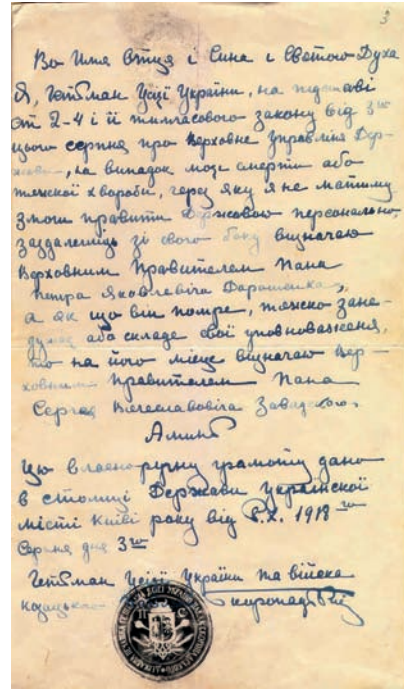 3
Во Имя Отця і Сина і Святого Духа
Я, Гетьман Усієї України, на підставі
ст 2-4 і її тимчасового закону від 3го
цього серпня про Верховне Управління Дер-
жави, на випадок моєї смерти або
тяжкої хвороби, через яку я не матиму
змоги правити Державою персонально,
заздалегідь зі свого боку визначаю
Верховним Правителем Пана
Петра Яковлевіча Дорошенка,
а як що він помре, тяжко зане-
дужає або складе свої уповноваження,
то на його місце визначаю Вер-
ховним Правителем Пана
Сергея Вячеславовіча Завадского.
Аминь
Цю власноручну грамоту дано
в столиці Держави Української
місті Київі року від Р.Х. 1918го
Серпня дня 3го
Гетьман Усієї України та війска
козацького